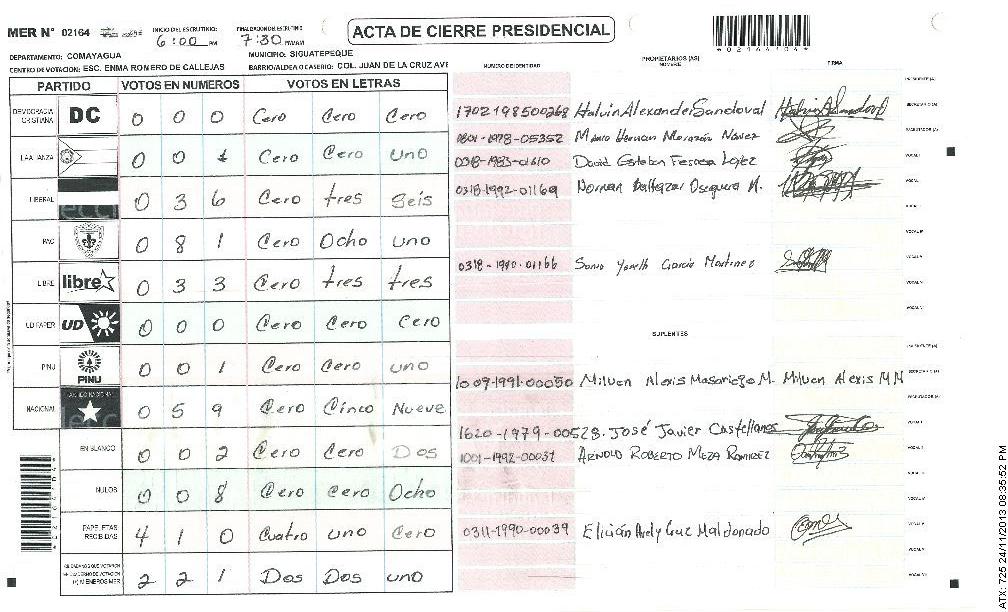 MER N° 02164
INICIO DEL ESCRUTINIO: 6:00 PM
FINALIZACION DE ESCRUTINIO: 7:30 PM
ACTA DE CIERRE PRESIDENCIAL
DEPARTAMENTO: COMAYAGUA MUNICIPIO: SIGUATEPEQUE
CENTRO DE VOTACION: ESC. ENMA ROMERO DE CALLEJAS BARRIO/ALDEA O CASERIO: COL. JUAN DE LA CRUZ AVE
PARTIDO VOTOS EN NUMEROS VOTOS EN LETRAS
DEMOCRACIA CRISTIANA DC 0 0 0 Cero Cero Cero
LA ALIANZA 0 0 1 Cero Cero uno
LIBERAL 0 3 6 Cero tres Seis
PAC 0 8 1 Cero Ocho uno
LIBRE libre 0 3 3 Cero tres tres
UD FAPER UD 0 0 0 Cero Cero Cero
PINU PINU 0 0 1 Cero Cero uno
NACIONAL 0 5 9 Cero Cinco Nueve
EN BLANCO 0 0 2 Cero Cero Dos
NULOS 0 0 8 Cero Cero Ocho
PAPELETAS RECIBIDAS 4 1 0 Cuatro uno Cero
CIUDADANOS QUE VOTARON EN CUADERNO DE VOTACION (+) MIEMBROS MER 2 2 1 Dos Dos uno
NUMERO DE IDENTIDAD PROPIETARIOS (AS) NOMBRE FIRMA
1702198500268 Halvin Alexander Sandoval
0801-1978-05352 Marco Hernan Morazán Núnez
0318-1983-01610 David Esteban
0318-1992-01169 Norman Baltazar Oseguera M.
0318-1990-01166 Sonia Yaneth Garcia Martinez
SUPLENTES
1009-1991-00050 Milven Alexis M. Milven Alexis M M
1620-1979-00528. José Javier Castellanos
1001-1992-00037 ARNOLD ROBERTO MEZA RAMIREZ
0311-1990-00039 Arely Cruz Maldonado
ATX: 725 24/11/2013 08:35:52 PM